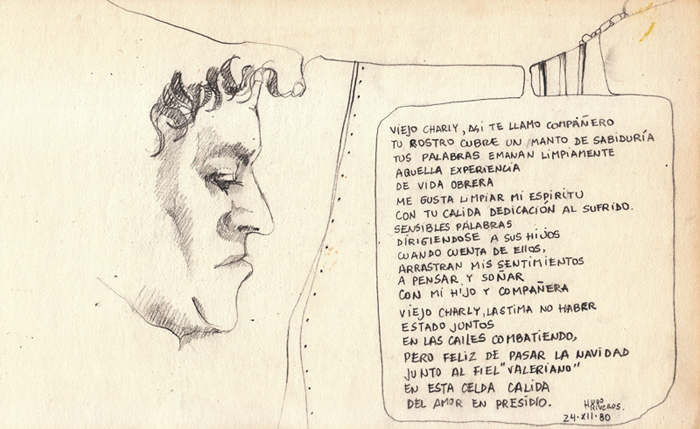 VIEJO CHARLY, ASI TE LLAMO COMPAÑERO
TU ROSTRO CUBRE UN MANTO DE SABIDURÍA
TUS PALABRAS EMANAN LIMPIAMENTE
AQUELLA EXPERIENCIA
DE VIDA OBRERA
ME GUSTA LIMPIAR MI ESPIRITU
CON TU CALIDA DEDICACIÓN AL SUFRIDO.
SENSIBLES PALABRAS
DIRIGIENDOSE A SUS HIJOS
CUANDO CUENTA DE ELLOS,
ARRASTRAN MIS SENTIMIENTOS
A PENSAR Y SOÑAR
CON MI HIJO Y COMPAÑERA
VIEJO CHARLY, LASTIMA NO HABER
ESTADO JUNTOS
EN LAS CALLES COMBATIENDO,
PERO FELIZ DE PASAR LA NAVIDAD
JUNTO AL FIEL "VALERIANO"
EN ESTA CELDA CALIDA
DEL AMOR EN PRESIDIO.
HUGO
RIVEROS.
24·XII·80